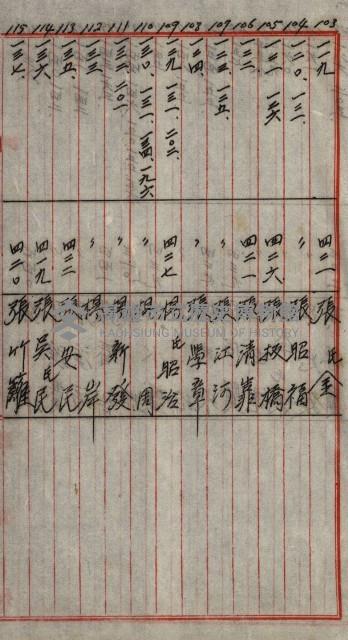 103 一一九 四二一 張氏金
104 一二〇、一三一 〃 張昭福
105 一二一、一二六 四二六 張板橋
106 一二二 四二一 張清靠
107 一二三、一三五 〃 張江河
103 一二四 〃 張學章
109 一二九、一三一、二〇二 四二七 楊氏昭治
110 一三〇、一三一、一三四、一九六 〃 楊周
111 一三二、二〇一 〃 楊新發
112 一三三 〃 楊岸
113 一三五 四二二 張安民
114 一三六 四一九 張吳氏民
115 一三七 四二〇 張竹籬
KAOHSIUNG MUSEUM OF HISTORY